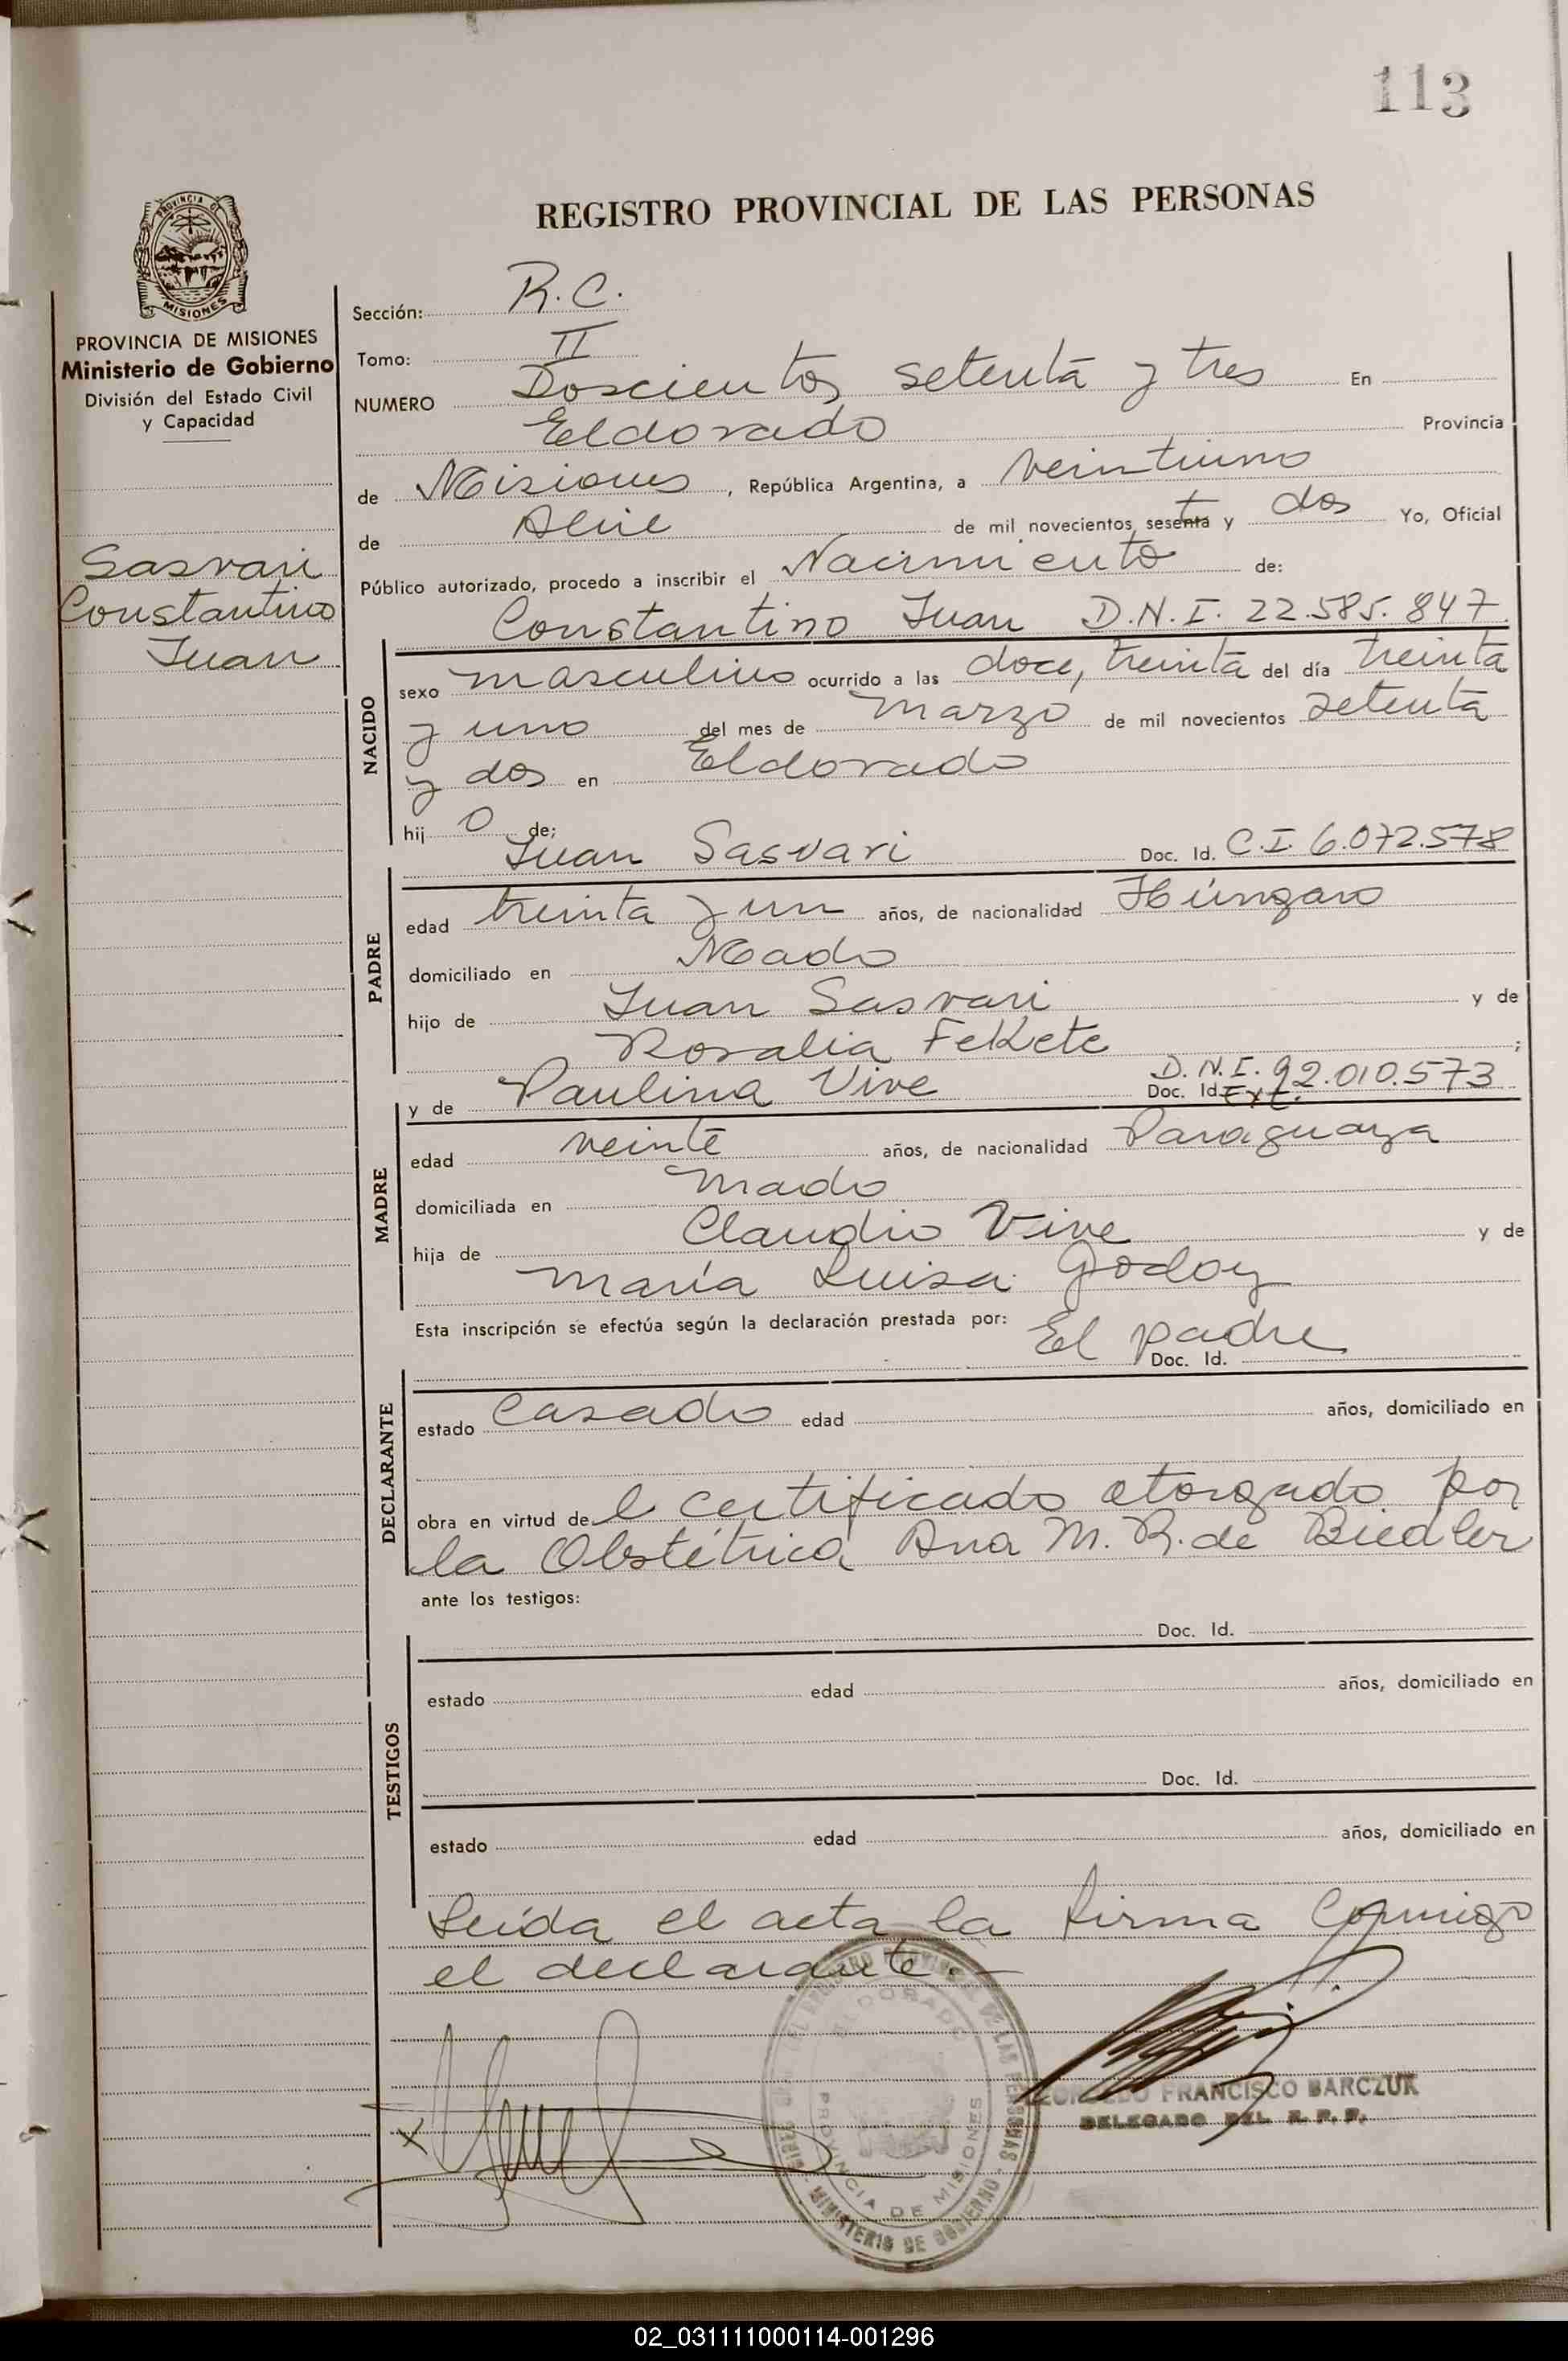 113
REGISTRO PROVINCIAL DE LAS PERSONAS
PROVINCIA DE MISIONES
MISIONES
PROVINCIA DE MISIONES
Ministerio de Gobierno
División del Estado Civil
y Capacidad
Sasvari
Constantino
Juan
Sección: R.C.
Tomo: II
NUMERO Doscientos setenta y tres En
Eldorado Provincia
de Misiones, República Argentina, a veintiuno
de Abril de mil novecientos sesenta y dos Yo, Oficial
Público autorizado, procedo a inscribir el Nacimiento de:
Constantino Juan D.N.I. 22.585.847
NACIDO
sexo masculino ocurrido a las doce, treinta del día treinta
y uno del mes de marzo de mil novecientos setenta
y dos en Eldorado
hij o de;
Juan Sasvari Doc. Id. C.I. 6.072.578
PADRE
edad treinta y un años, de nacionalidad Húngaro
domiciliado en Mado
hijo de Juan Sasvari y de
Rosalia Fekete ;
y de Paulina Vive D.N.I. 92.010.573
Doc. Id. Ext.
MADRE
edad veinte años, de nacionalidad Paraguaya
domiciliada en Mado
hija de Claudio Vive y de
María Luisa Godoy
Esta inscripción se efectúa según la declaración prestada por: El padre
Doc. Id.
DECLARANTE
estado Casado edad años, domiciliado en
obra en virtud de l certificado otorgado por
la Obstétrica Ana M. R. de Biedler
ante los testigos:
Doc. Id.
TESTIGOS
estado edad años, domiciliado en
Doc. Id.
estado edad años, domiciliado en
Leída el acta la firma Conmigo
el declarante.
ELDORADO
PROVINCIA DE MISIONES
MINISTERIO DE GOBIERNO
x
FRANCISCO BARCZUK
DELEGADO DEL R. P. P.
02_031111000114-001296